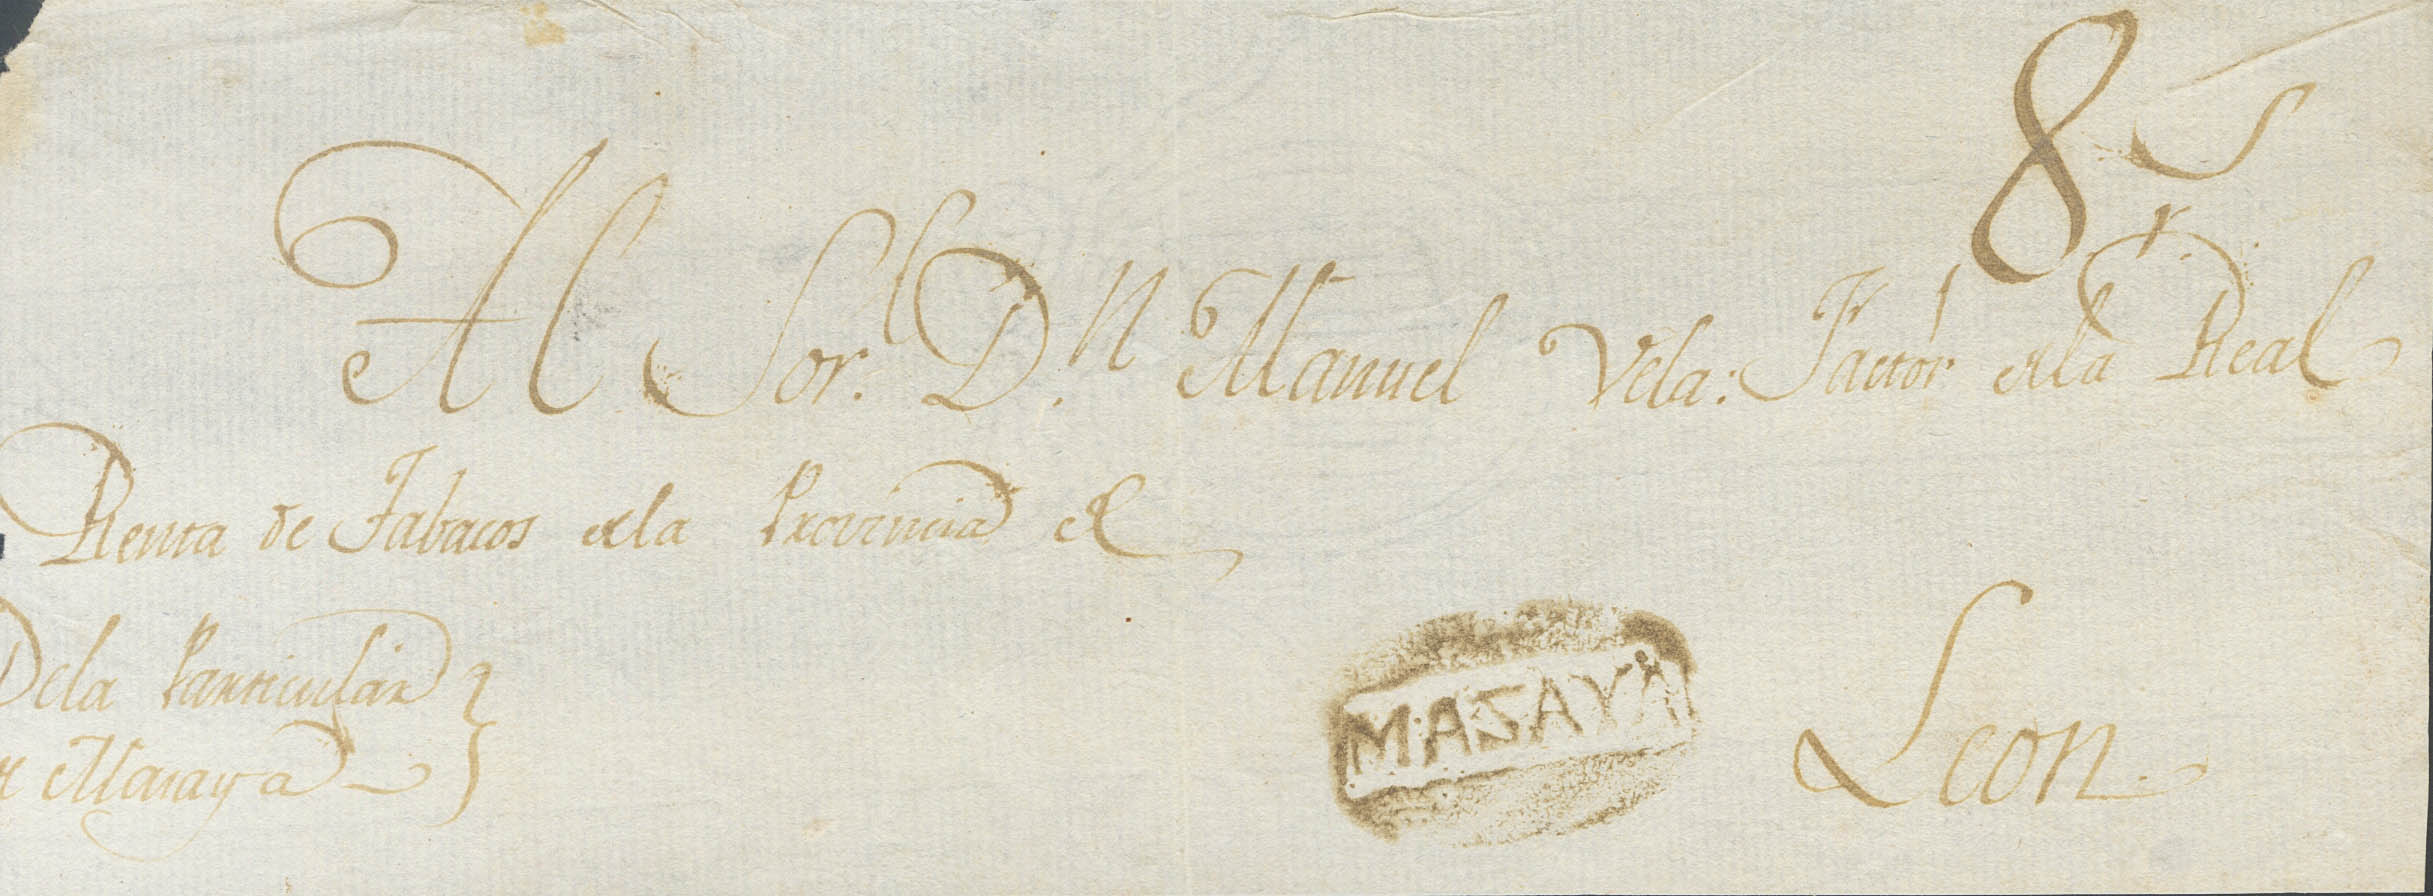 8 rs
Al Sor. Dn. Manuel Vela: Factor de la Real
Renta de Tabacos de la Provincia de
Leon.
De la Particular
de Masaya
MASAYA